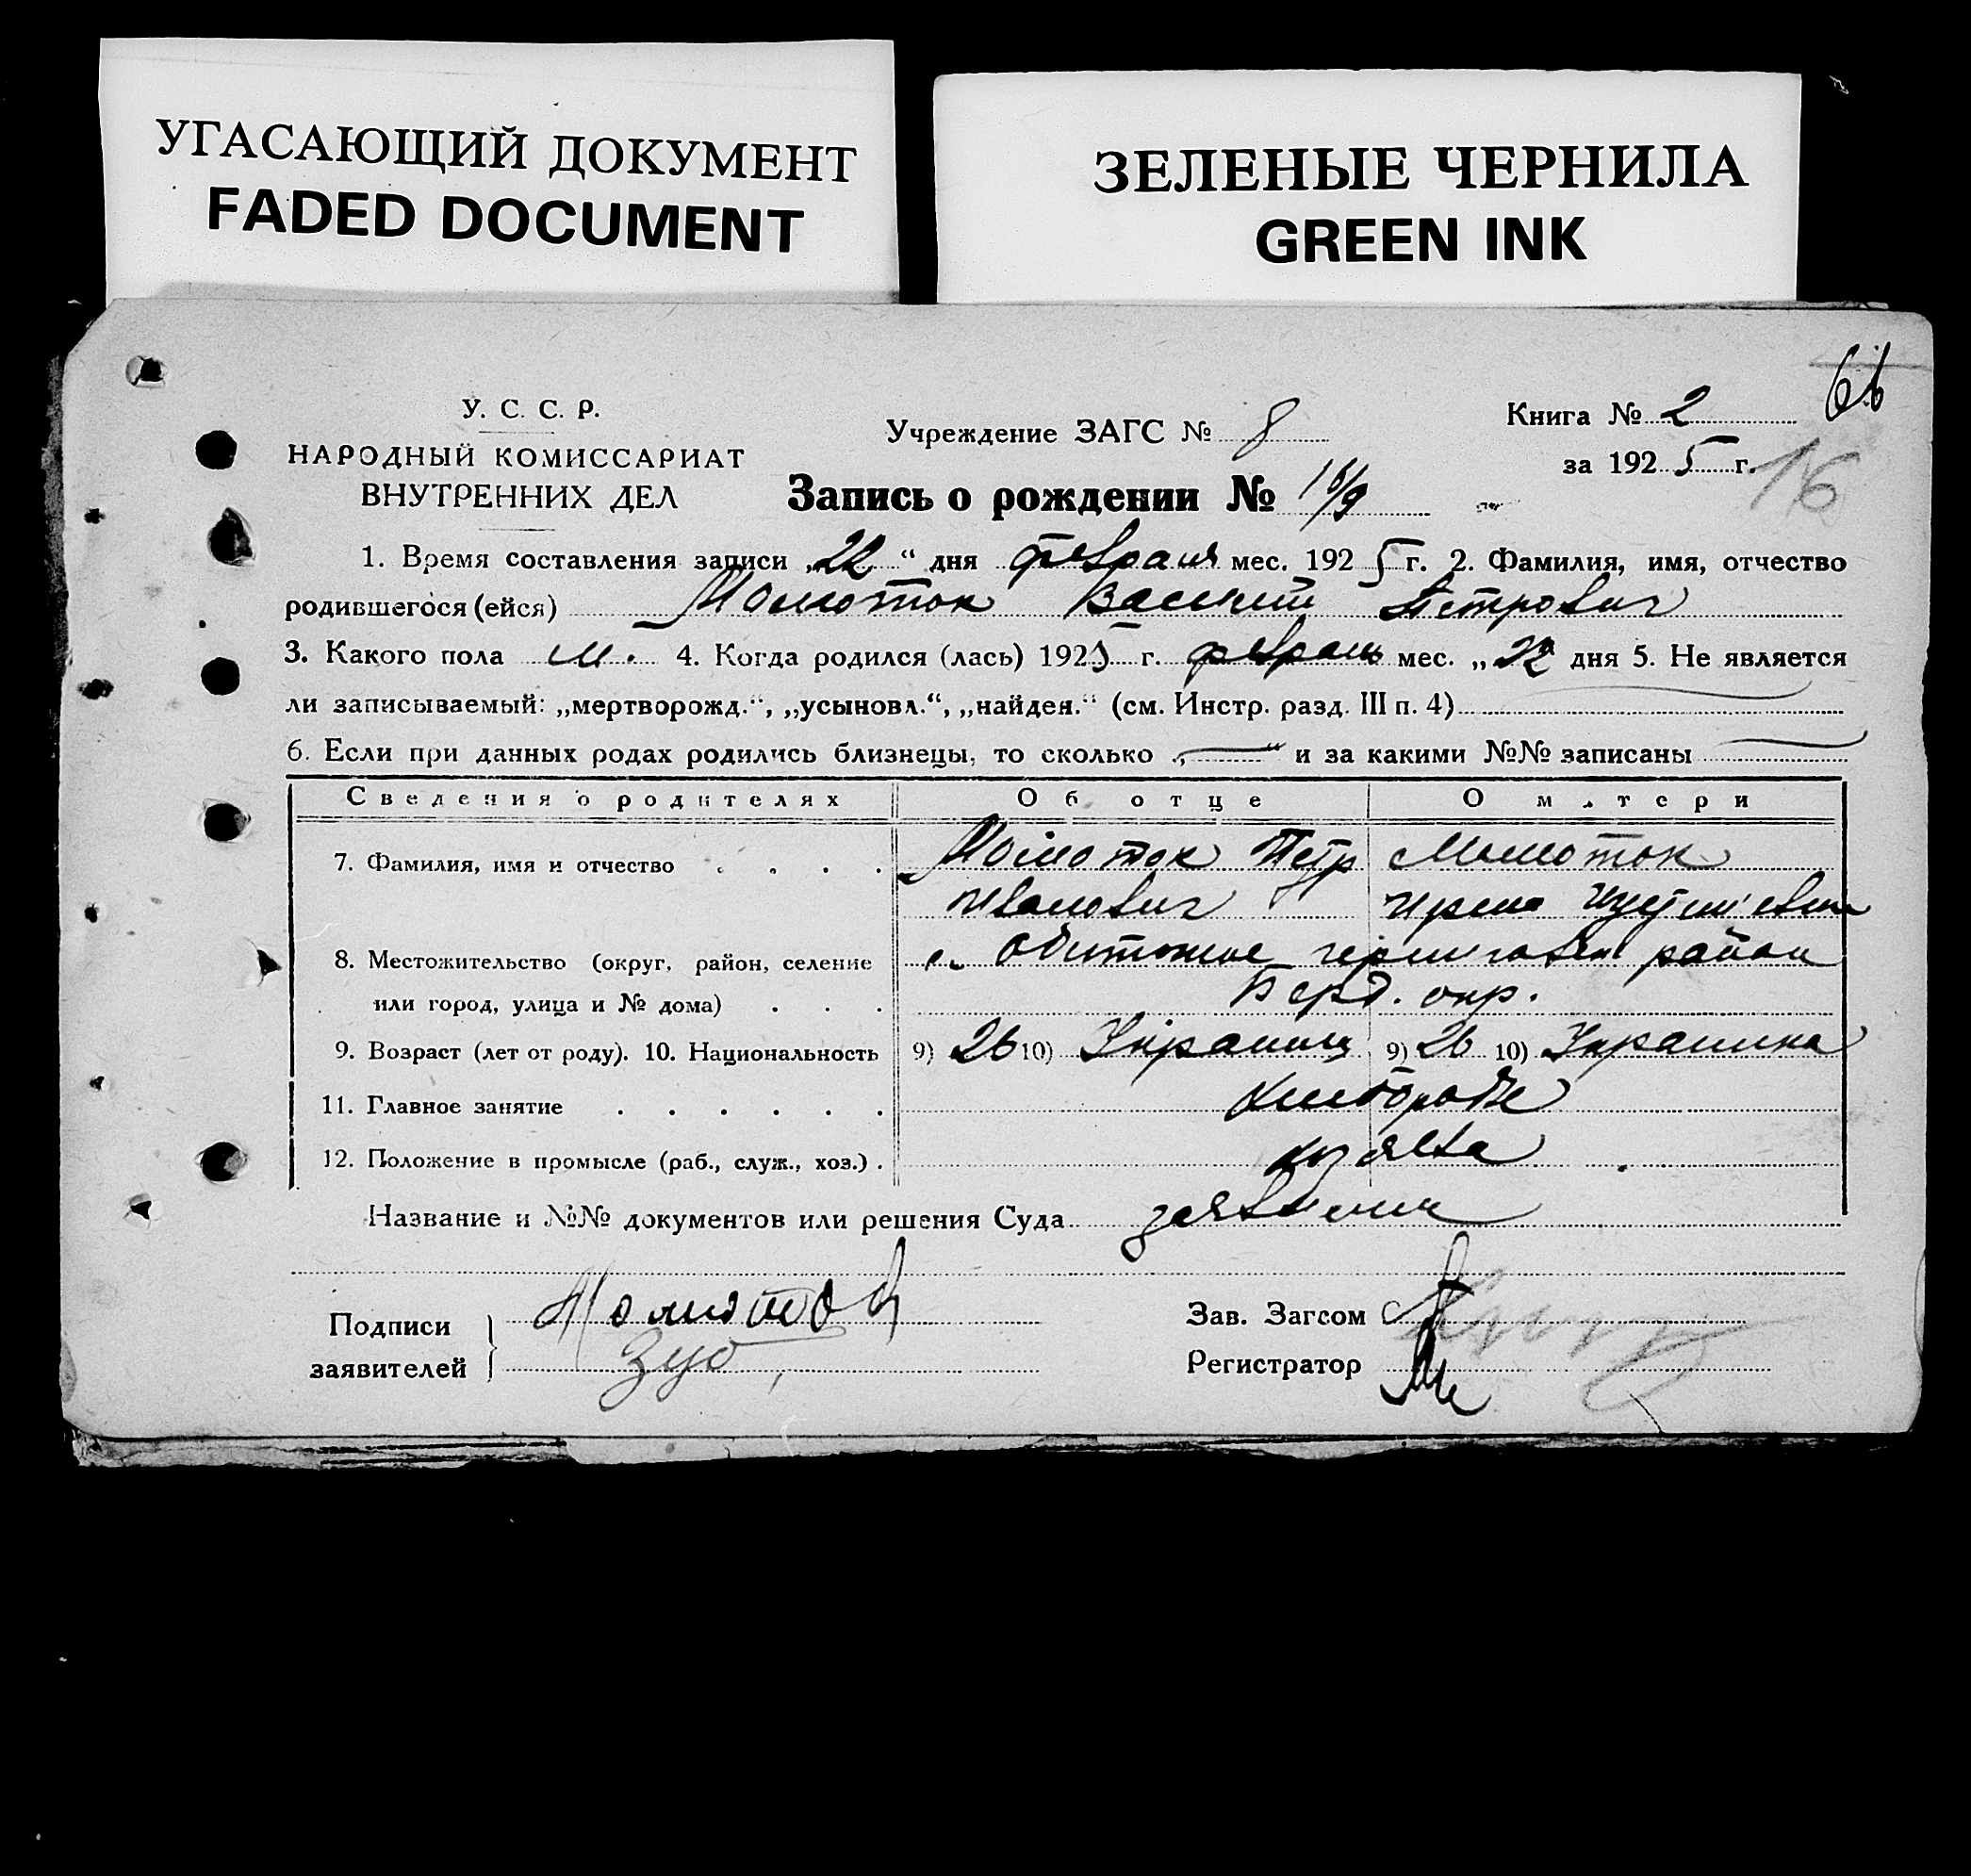 УГАСАЮЩИЙ ДОКУМЕНТ
FADED DOCUMENT
ЗЕЛЕНЫЕ ЧЕРНИЛА
GREEN INK
66
У. С. С. Р.
НАРОДНЫЙ КОМИССАРИАТ
ВНУТРЕННИХ ДЕЛ
Учреждение ЗАГС № 8
Книга № 2
за 1925 г.
16
Запись о рождении № 16/9
1. Время составления записи „22“ дня февраля мес. 1925 г. 2. Фамилия, имя, отчество
родившегося (ейся) Молоток Василий Петрович
3. Какого пола м. 4. Когда родился (лась) 1925 г. февраль мес. „22 дня 5. Не является
ли записываемый: „мертворожд.“, „усыновл.“, „найден.“ (см. Инстр. разд. III п. 4)
6. Если при данных родах родились близнецы, то сколько „—“ и за какими №№ записаны —
Сведения о родителях Об отце О матери
7. Фамилия, имя и отчество Молоток Петр Молоток
Иванович Ирина
8. Местожительство (округ, район, селение с. Обиточное район
или город, улица и № дома) Берд. окр.
9. Возраст (лет от роду). 10. Национальность 9) 26 10) Украинец 9) 26 10) Украинка
11. Главное занятие хлебороб
12. Положение в промысле (раб., служ., хоз.) хозяева
Название и №№ документов или решения Суда заявление
Подписи
заявителей
Молоток
Зуб
Зав. Загсом
Регистратор